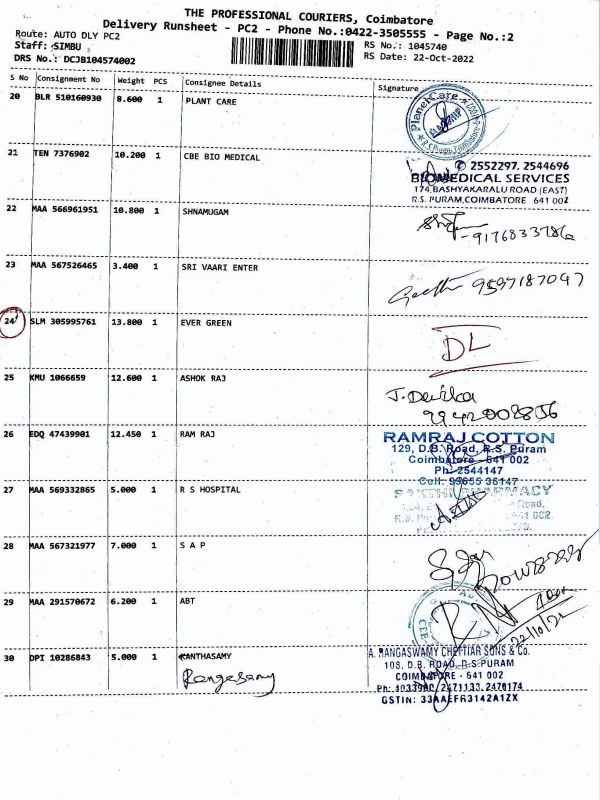 THE PROFESSIONAL COURIERS, Coimbatore
Delivery Runsheet - PC2 - Phone No.:0422-3505555 - Page No.:2
Route: AUTO DLY PC2
Staff: SIMBU
RS No.: 1045740
DRS No.: DCJB104574002
RS Date: 22-Oct-2022
S No Consignment No Weight PCS Consignee Details Signature
20 BLR 510160930 8.600 1 PLANT CARE
PlanetCare
21 TEN 7376902 10.200 1 CBE BIO MEDICAL
2552297, 2544696
BIOMEDICAL SERVICES
174,BASHYAKARALU ROAD (EAST)
R.S. PURAM,COIMBATORE 641 002
22 MAA 566961951 10.800 1 SHNAMUGAM
-9176833786
23 MAA 567526465 3.400 1 SRI VAARI ENTER
Geetha 9597187047
24 SLM 305995761 13.800 1 EVER GREEN
DL
25 KMU 1066659 12.600 1 ASHOK RAJ
J. Devika
9942002856
26 EDQ 47439901 12.450 1 RAM RAJ
RAMRAJ COTTON
129, D.B. Road, R.S. Puram
Coimbatore - 641 002
Ph: 2544147
Cell: 99655 36147
27 MAA 569332865 5.000 1 R S HOSPITAL
SAKTHI PHARMACY
Road,
641 002.
28 MAA 567321977 7.000 1 S A P
29 MAA 291570672 6.200 1 ABT
22/10/22
30 DPI 10286843 5.000 1 KANTHASAMY
Rangasamy
A. RANGASWAMY CHETTIAR SONS & Co.
108, D.B. ROAD, R.S.PURAM
COIMBATORE - 641 002
2471133, 2476174
GSTIN: 33AAEFR3142A1ZX